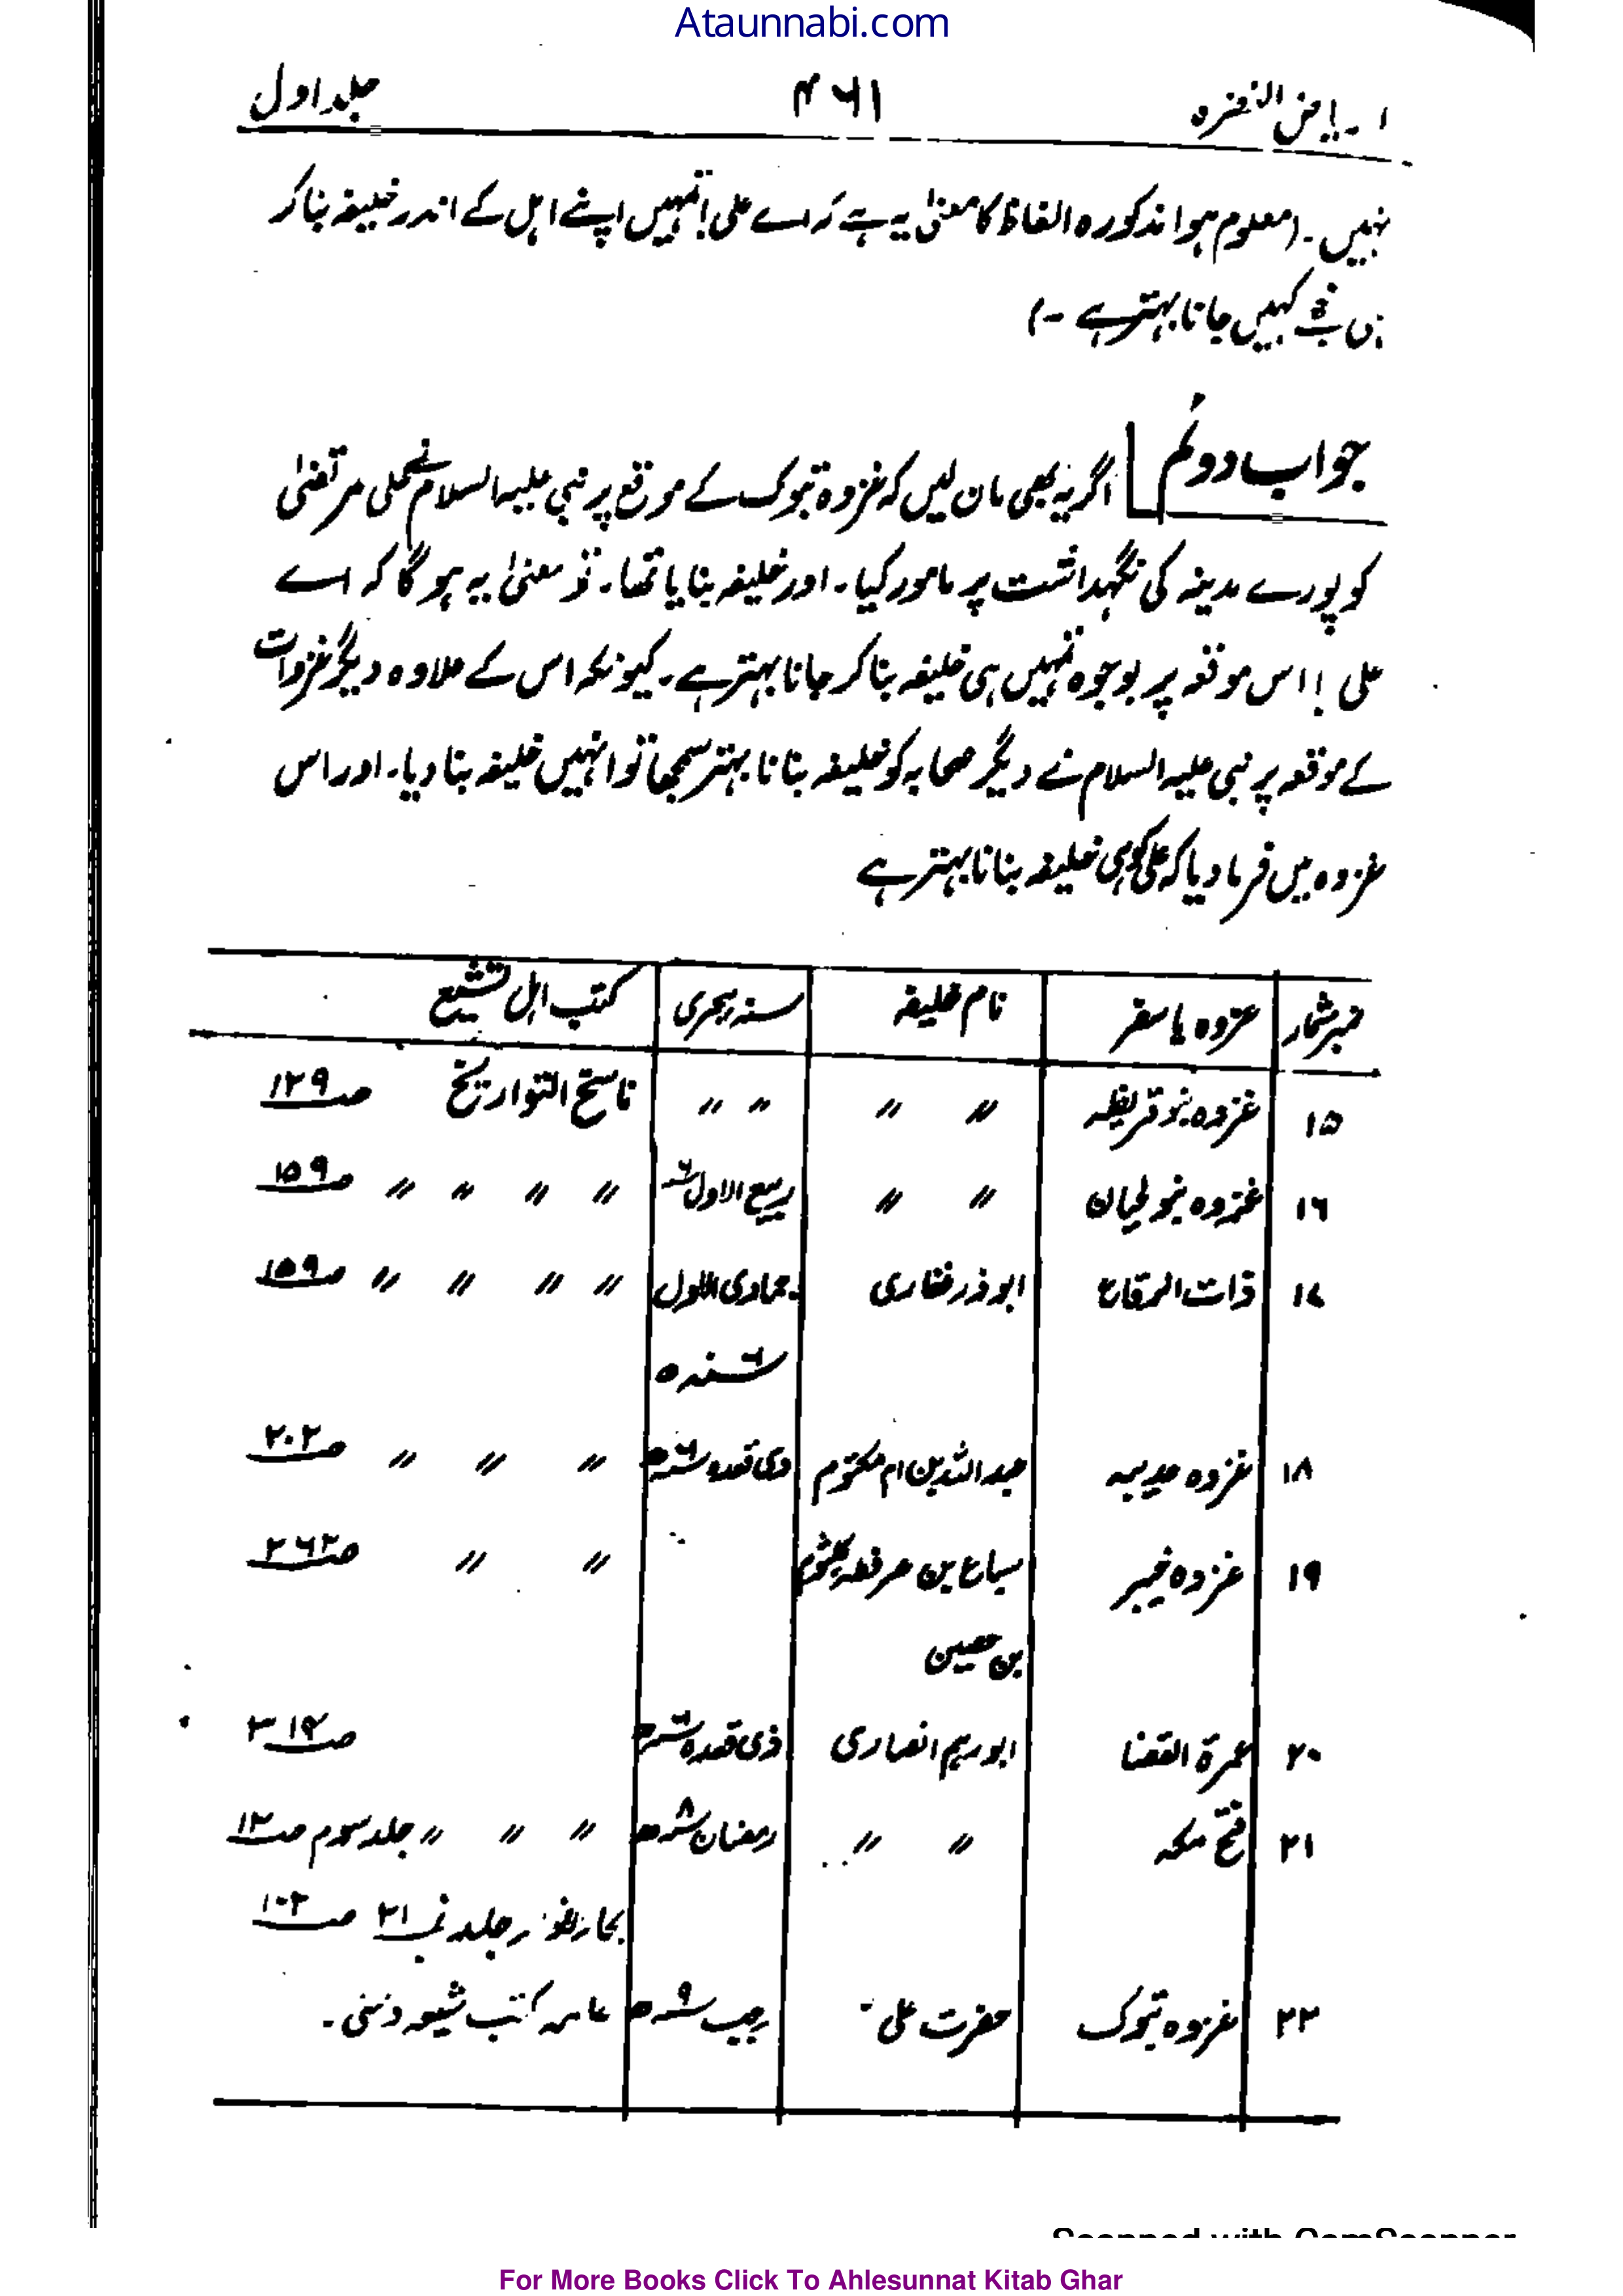 Ataunnabi.com
ریاض النضرہ ۴۶۱ جلد اول
نہیں۔ (معلوم ہوا مذکورہ الفاظ کا معنیٰ یہ ہے کہ اے علی! تمہیں اپنے اہل کے اندر خلیفہ بنا کر
ہی کہیں جانا بہتر ہے۔)
جواب دوئم اگر یہ بھی مان لیں کہ غزوہ تبوک کے موقع پر نبی علیہ السلام نے علی مرتضیٰ
کو پورے مدینہ کی نگہداشت پر مامور کیا۔ اور خلیفہ بنایا تھا۔ تو معنیٰ یہ ہو گا کہ اے
علی! اس موقعہ پر بوجوہ تمہیں ہی خلیفہ بنا کر جانا بہتر ہے۔ کیونکہ اس کے علاوہ دیگر غزوات
کے موقعہ پر نبی علیہ السلام نے دیگر صحابہ کو خلیفہ بنانا بہتر سمجھا تو انہیں خلیفہ بنا دیا۔ اور اس
غزوہ میں فرما دیا کہ علی کو ہی خلیفہ بنانا بہتر ہے
نمبر شمار غزوہ یا سفر نام خلیفہ سنہ ہجری کتب اہل تشیع
۱۵ غزوہ بنو قریظہ 〃 〃 〃 〃 ناسخ التواریخ صـ۱۲۹
۱۶ غزوہ بنو لحیان 〃 〃 ربیع الاول ۶ھ 〃 〃 〃 〃 صـ۱۵۹
۱۷ ذات الرقاع ابوذر غفاری جمادی الاول 〃 〃 〃 〃 صـ۱۵۹
سنہ ۶ ھ
۱۸ غزوہ حدیبیہ عبداللہ بن ام مکتوم ذی قعدہ ۶ھ 〃 〃 〃 صـ۲۰۲
۱۹ غزوہ خیبر سباع بن عرفطہ 〃 〃 صـ۲۶۲
بن حصین
۲۰ عمرۃ القضا ابو رہم انصاری ذی قعدہ ھ صـ۳۱۴
۲۱ فتح مکہ 〃 〃 رمضان ۸ھ 〃 〃 〃 جلد سوم صـ۱۲
بحار الانوار جلد نمبر ۲۱ صـ۱۰۲
۲۲ غزوہ تبوک حضرت علی رجب ۹ھ عامہ کتب شیعہ و سنی۔
Scanned with CamScanner
For More Books Click To Ahlesunnat Kitab Ghar